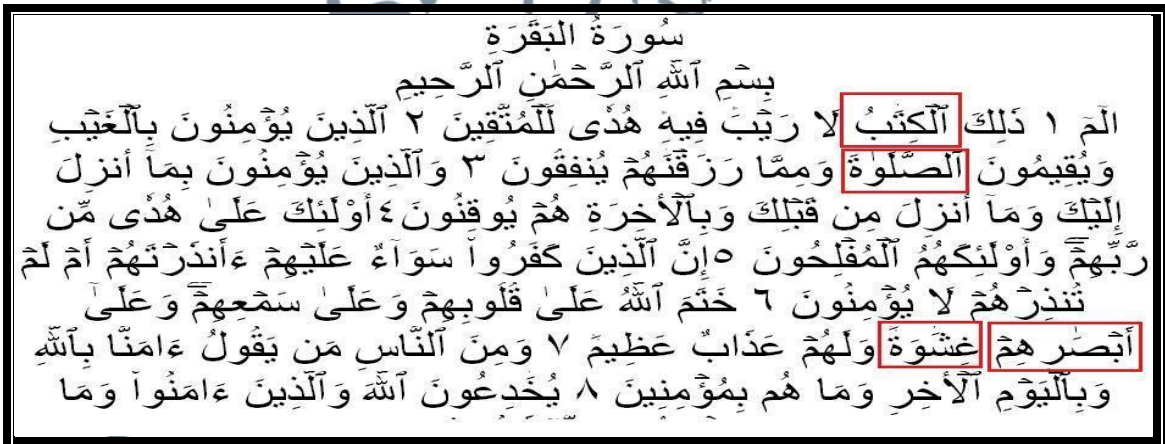 سُورَةُ البَقَرَةِ
بِسۡمِ ٱللَّهِ ٱلرَّحۡمَٰنِ ٱلرَّحِيمِ
الٓمٓ ١ ذَٰلِكَ ٱلۡكِتَٰبُ لَا رَيۡبَۛ فِيهِۛ هُدٗى لِّلۡمُتَّقِينَ ٢ ٱلَّذِينَ يُؤۡمِنُونَ بِٱلۡغَيۡبِ
وَيُقِيمُونَ ٱلصَّلَوٰةَ وَمِمَّا رَزَقۡنَٰهُمۡ يُنفِقُونَ ٣ وَٱلَّذِينَ يُؤۡمِنُونَ بِمَآ أُنزِلَ
إِلَيۡكَ وَمَآ أُنزِلَ مِن قَبۡلِكَ وَبِٱلۡأٓخِرَةِ هُمۡ يُوقِنُونَ ٤ أُوْلَٰٓئِكَ عَلَىٰ هُدٗى مِّن
رَّبِّهِمۡۖ وَأُوْلَٰٓئِكَهُمُ ٱلۡمُفۡلِحُونَ ٥ إِنَّ ٱلَّذِينَ كَفَرُواْ سَوَآءٌ عَلَيۡهِمۡ ءَأَنذَرۡتَهُمۡ أَمۡ لَمۡ
تُنذِرۡهُمۡ لَا يُؤۡمِنُونَ ٦ خَتَمَ ٱللَّهُ عَلَىٰ قُلُوبِهِمۡ وَعَلَىٰ سَمۡعِهِمۡۖ وَعَلَىٰٓ
أَبۡصَٰرِهِمۡ غِشَٰوَةٞ وَلَهُمۡ عَذَابٌ عَظِيمٞ ٧ وَمِنَ ٱلنَّاسِ مَن يَقُولُ ءَامَنَّا بِٱللَّهِ
وَبِٱلۡيَوۡمِ ٱلۡأٓخِرِ وَمَا هُم بِمُؤۡمِنِينَ ٨ يُخَٰدِعُونَ ٱللَّهَ وَٱلَّذِينَ ءَامَنُواْ وَمَا